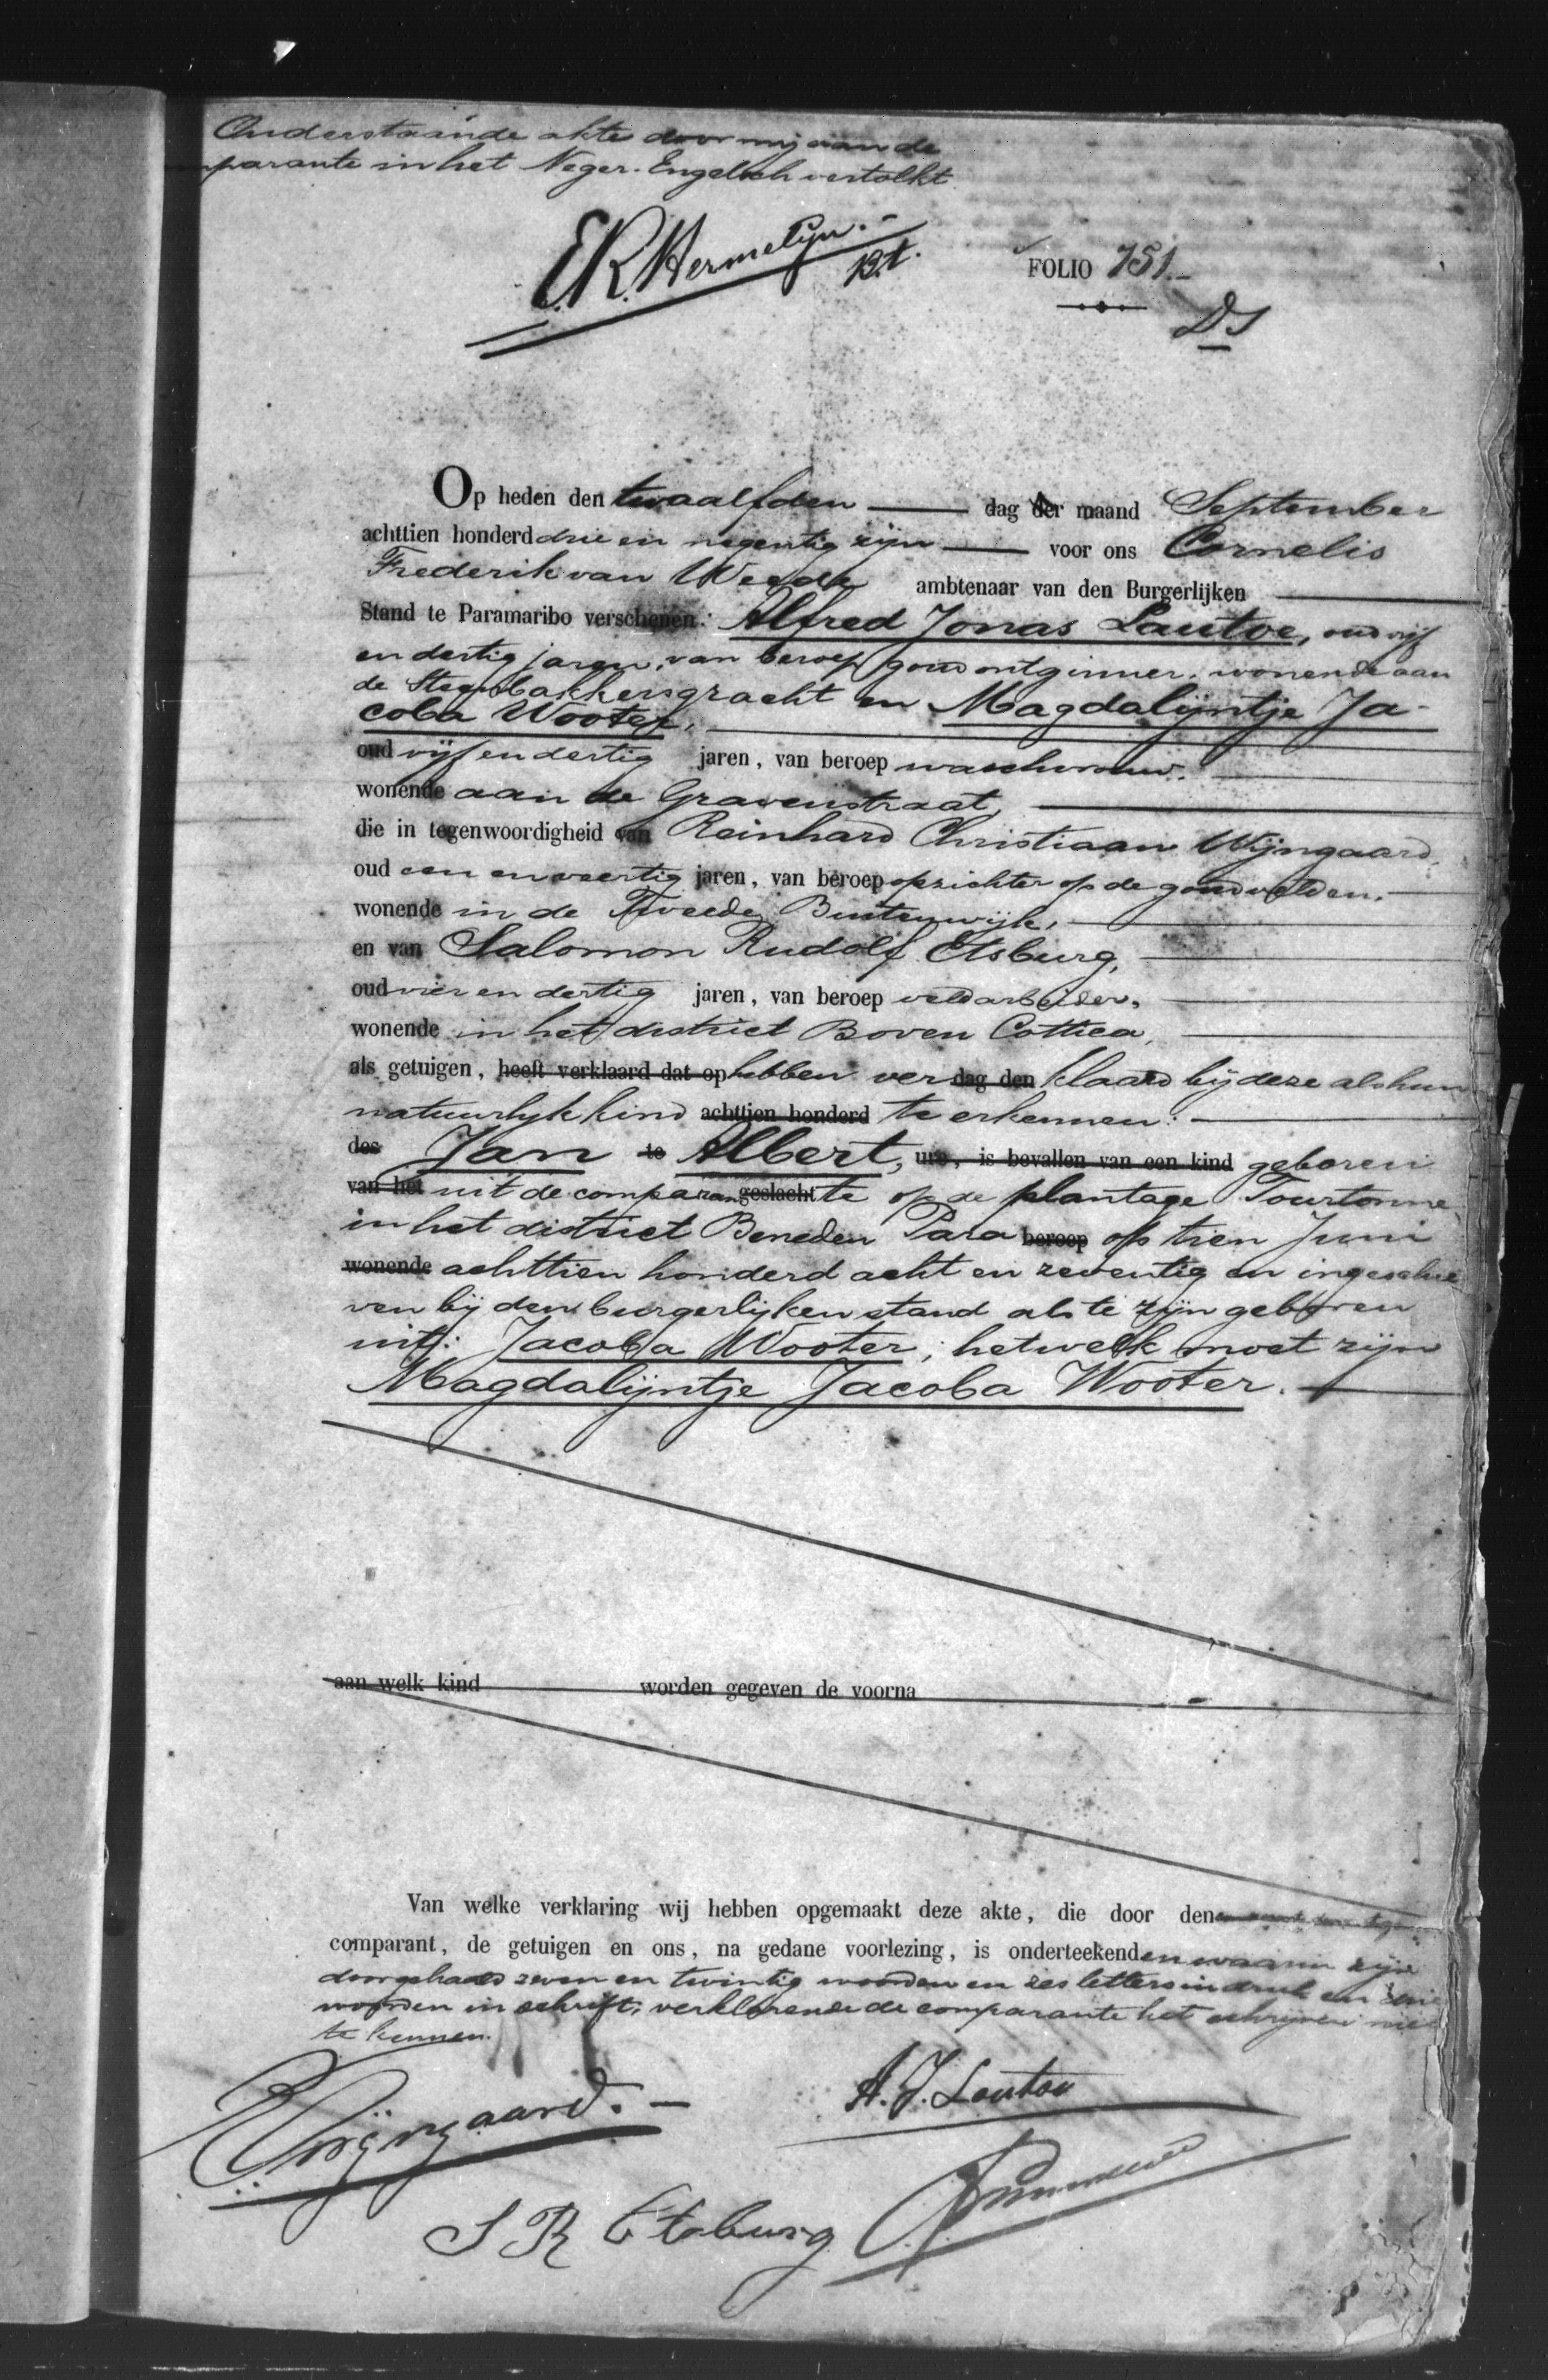 Onderstaande akte door mij aan de
parante in het Neger-Engelsch vertolkt
E.R. Hermelijn.
FOLIO 751.-
DS
Op heden den twaalfden dag der maand September
achttien honderd drie en negentig zijn voor ons Cornelis
Frederik van Weede ambtenaar van den Burgerlijken
Stand te Paramaribo verschenen: Alfred Jonas Lautoe, oud vijf
en dertig jaren, van beroep goudontginner, wonende aan
de Steenbakkersgracht en Magdalijntje Ja-
coba Wooter,
oud vijf en dertig jaren, van beroep waschvrouw,
wonende aan de Gravenstraat,
die in tegenwoordigheid van Reinhard Christiaan Wijngaard,
oud een en veertig jaren, van beroep opzichter op de goudvelden,
wonende in de Tweede Buitenwijk,
en van Salomon Rudolf Etsburg,
oud vier en dertig jaren, van beroep veldarbeider,
wonende in het district Boven Cottica,
als getuigen, heeft verklaard dat op hebben ver dag den klaard bij deze als hun
natuurlijk kind achttien honderd te erkennen:
des Jan te Albert, ure, is bevallen van een kind geboren
van het uit de comparan geslacht te op de plantage Tourtonne
in het district Beneden Para beroep op tien Juni
wonende achttien honderd acht en zeventig en ingeschre
ven bij den burgerlijken stand als te zijn geboren
uit: Jacoba Wooter; hetwelk moet zijn
Magdalijntje Jacoba Wooter.
aan welk kind worden gegeven de voorna
Van welke verklaring wij hebben opgemaakt deze akte, die door den
comparant, de getuigen en ons, na gedane voorlezing, is onderteekend en waarin zijn
doorgehaald zeven en twintig woorden en zes letters in druk en drie
woorden in schrift, verklarende de comparante het schrijven niet
te kennen.
Wijngaard.-
A.J. Lautoe
S R Etsburg